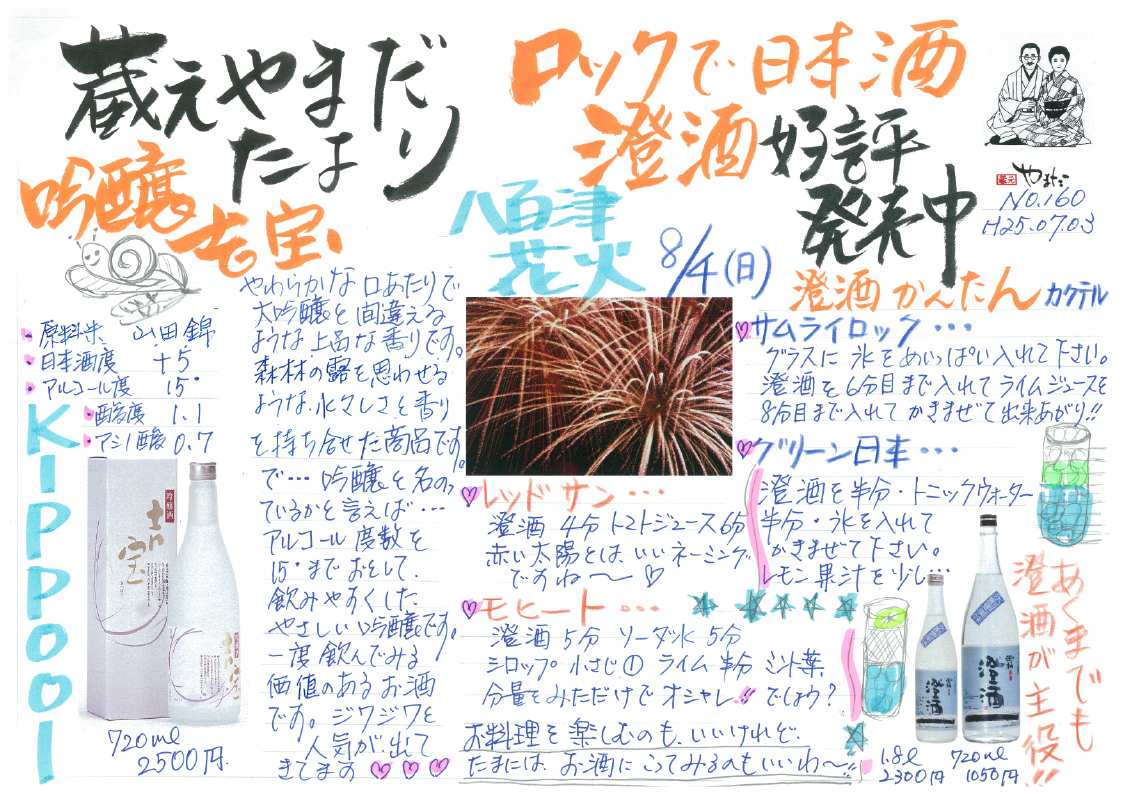 蔵元やまだ
だより
吟醸
吉宝
原料米 山田錦
日本酒度 +5
アルコール度 15°
酸度 1.1
アミノ酸 0.7
KIPPOOl
吟醸酒
吉宝
720ml
2500円
やわらかな口あたりで
大吟醸と間違える
ような上品な香りです。
森林の露を思わせる
ような、水々しさと香り
を持ち合せた商品です。
で…吟醸と名のっ
ているかと言えば…
アルコール度数を
15°までおとして、
飲みやすくした
やさしい吟醸です。
一度飲んでみる
価値のあるお酒
です。ジワジワと
人気が出て
きてます
ロックで日本酒
澄酒好評
発売中
蔵元 やまだ
NO.160
H25.07.03
八百津
花火 8/4(日)
澄酒かんたんカクテル
サムライロック・・・
グラスに氷をめいっぱい入れて下さい。
澄酒を6分目まで入れてライムジュースを
8分目まで入れてかきまぜて出来あがり!!
グリーン日本・・・
澄酒を半分・トニックウォーター
半分・氷を入れて
かきまぜて下さい。
レモン果汁を少し…
レッドサン・・・
澄酒4分トマトジュース6分
赤い太陽とはいいネーミング
ですね〜
モヒート・・・
澄酒5分 ソーダ水5分
シロップ小さじ① ライム半分 ミント葉
分量をみただけでオシャレ!!でしょう?
お料理を楽しむのも、いいけれど、
たまには、お酒にこってみるのもいいわ〜!!
澄酒
澄酒
1.8l
2300円
720ml
1050円
あくまでも
澄酒が主役!!